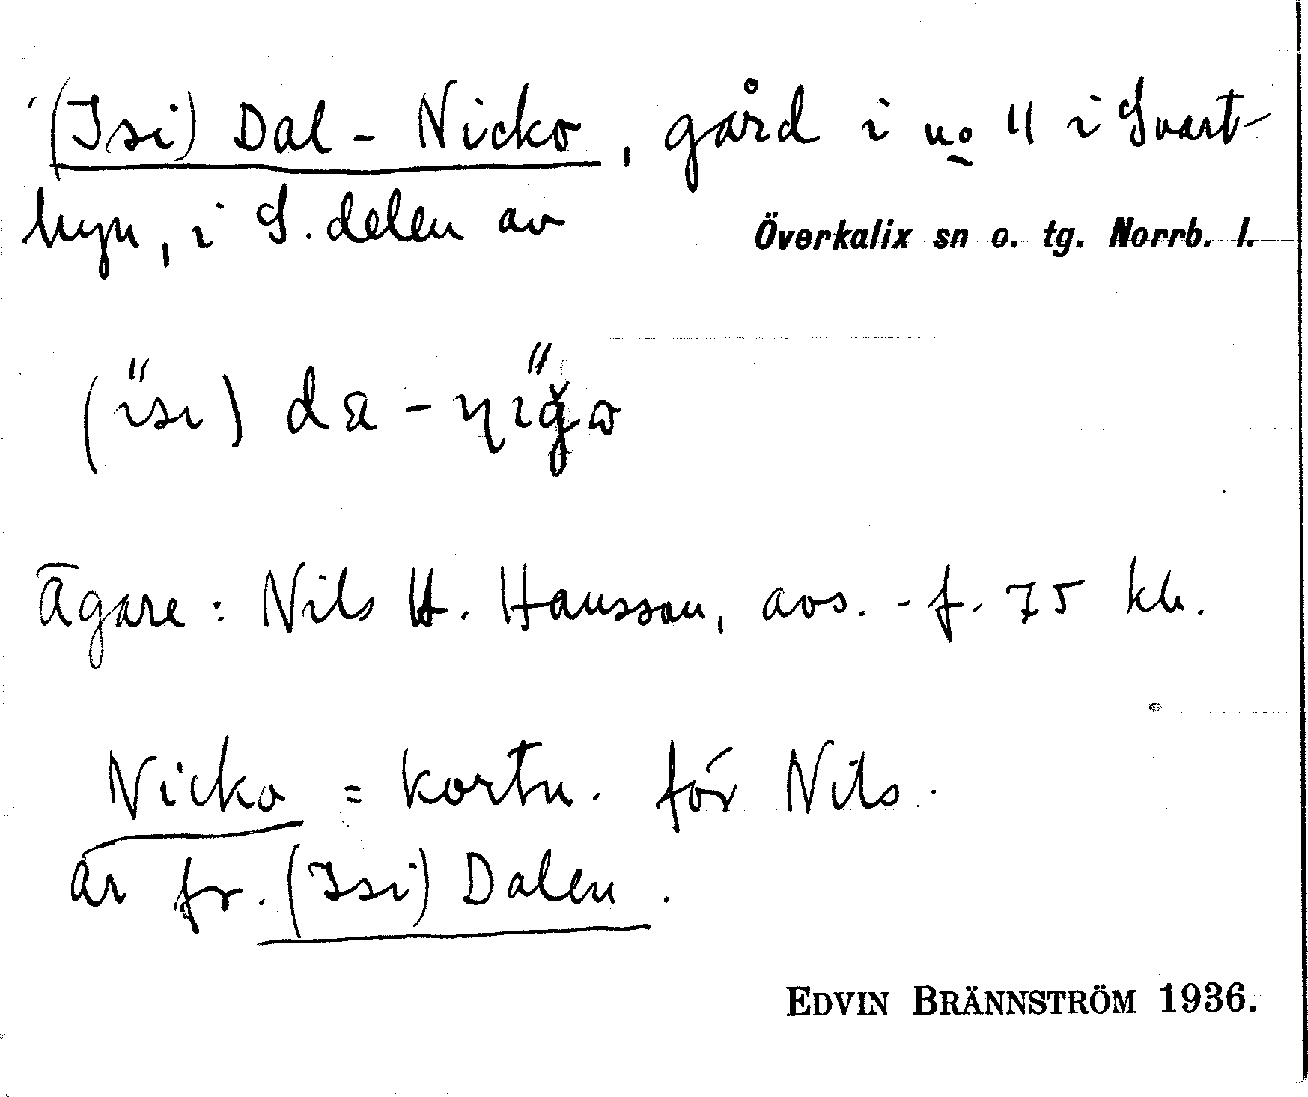 (Isi) Dal-Nicko, gård i no 11 i Svart-
byn, i S. delen av Överkalix sn o. tg. Norrb. l.
Ägare: Nils H. Hansson, avs. - f. 75 kh.
Nicko = kortn. för Nils.
är fr. (Isi) Dalen.
EDVIN BRÄNNSTRÖM 1936.